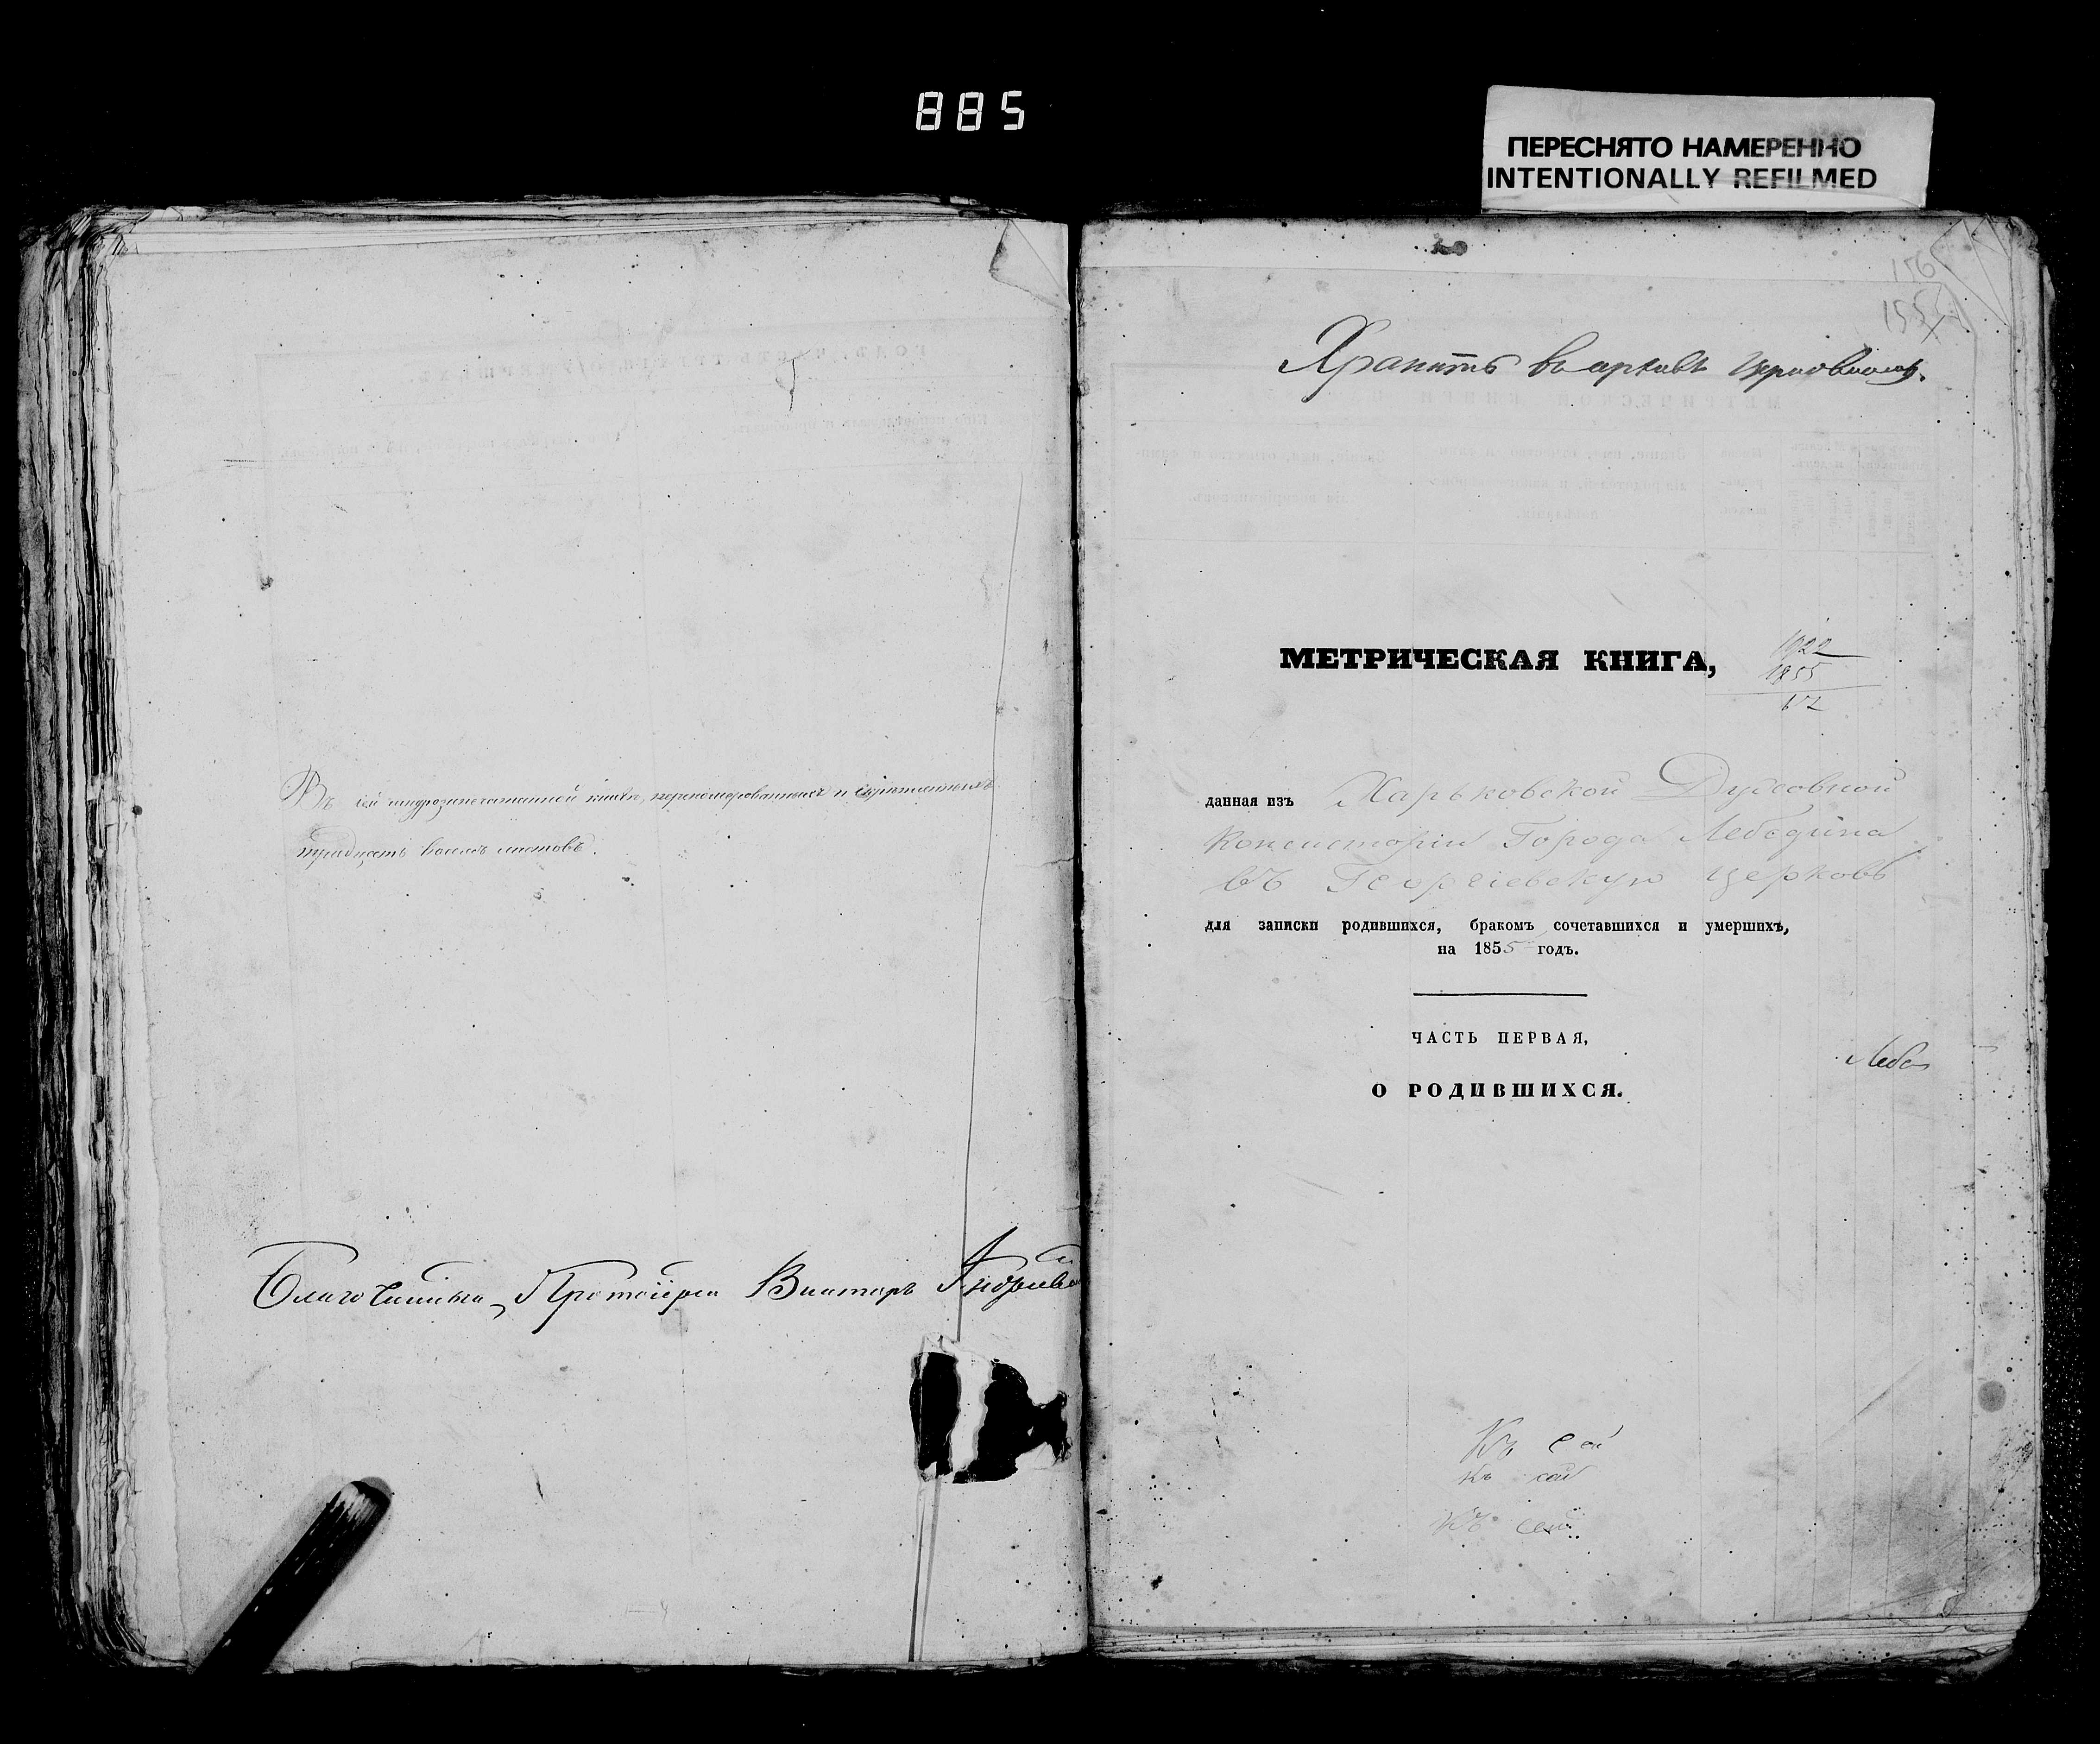 885
ПЕРЕСНЯТО НАМЕРЕННО
INTENTIONALLY REFILMED
Въ сей шнурозапечатанной книгѣ, перенумерованныхъ и скрѣпленныхъ
тридцать восемь листовъ.
Благочинный, Протоіерей Викторъ
156
155
Хранить въ архивѣ
МЕТРИЧЕСКАЯ КНИГА,
1922
1855
данная изъ Харьковской Духовной
Консисторіи Города Лебедина
въ Георгіевскую церковь
для записки родившихся, бракомъ сочетавшихся и умершихъ,
на 1855 годъ.
ЧАСТЬ ПЕРВАЯ,
Лебе
О РОДИВШИХСЯ.
Къ сей
Къ сей
Къ сей